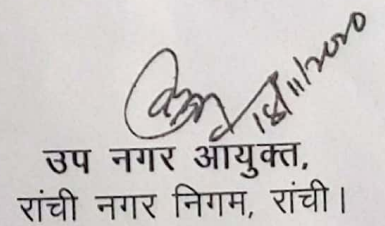 18/11/2020
उप नगर आयुक्त,
रांची नगर निगम, रांची।